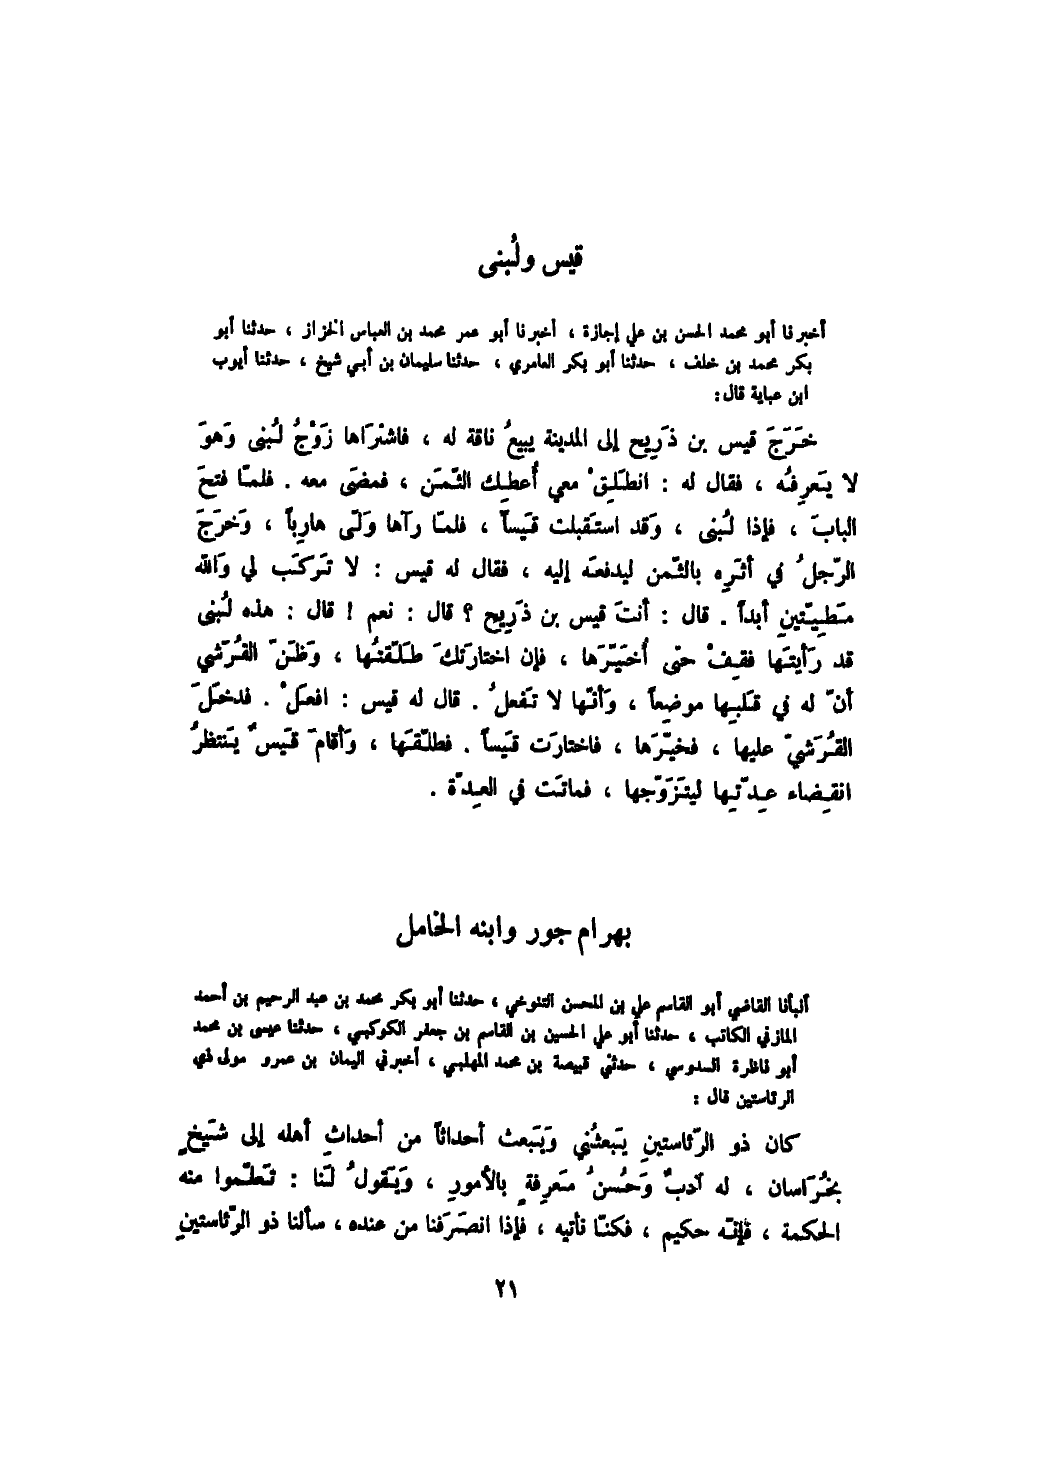 قيس ولُبنى
أخبرنا أبو محمد الحسن بن علي إجازة ، أخبرنا أبو عمر محمد بن العباس الخزاز ، حدثنا أبو
بكر محمد بن خلف ، حدثنا أبو بكر العامري ، حدثنا سليمان بن أبي شيخ ، حدثنا أيوب
ابن عباية قال:
خَرَجَ قيس بن ذَرِيح إلى المدينة يبيعُ ناقة له ، فاشْتَرَاها زَوْجُ لُبنى وَهوَ
لا يَعرِفُه ، فقال له : انطَلِقْ معي أُعطِك الثّمَن ، فمضَى معه . فلمّا فتحَ
البابَ ، فإذا لُبنى ، وَقد استَقبلت قَيساً ، فلمّا رآها وَلّى هارِباً ، وَخرَجَ
الرّجلُ في أثَرِه بالثّمن ليدفعَه إليه ، فقال له قيس : لا تَركَب لي وَالله
مَطِيّتَينِ أبداً . قال : أنتَ قيس بن ذَرِيح ؟ قال : نعم ! قال : هذه لُبنى
قد رَأيتَها فقِفْ حتى أُخَيّرَها ، فإن اختارَتكَ طَلّقتُها ، وَظَنّ القُرَشي
أنّ له في قَلبِها موضِعاً ، وَأنّها لا تَفعلُ . قال له قيس : افعَلْ . فدخَلَ
القُرَشيّ عليها ، فخيّرَها ، فاختارَت قَيساً . فطلّقَها ، وَأقامَ قَيسٌ يَنتظرُ
انقِضاء عِدّتِها ليتَزَوّجها ، فماتَت في العِدّة .
بهرام جور وابنه الخامل
أنبأنا القاضي أبو القاسم علي بن المحسن التنوخي ، حدثنا أبو بكر محمد بن عبد الرحيم بن أحمد
المازني الكاتب ، حدثنا أبو علي الحسين بن القاسم بن جعفر الكوكبي ، حدثنا عيسى بن محمد
أبو ناظرة السدوسي ، حدثني قبيصة بن محمد المهلبي ، أخبرني اليمان بن عمرو مولى ذي
الرئاستين قال :
كان ذو الرّئاستينِ يَبعثُني وَيَبعث أحداثاً من أحداثِ أهله إلى شَيخٍ
بخُرَاسان ، له أدبٌ وَحُسنُ مَعرِفةٍ بالأمورِ ، وَيَقولُ لَنا : تَعلّموا منه
الحكمة ، فإنّه حكيم ، فكنّا نأتيه ، فإذا انصَرَفنا من عنده ، سألنا ذو الرّئاستينِ
٢١